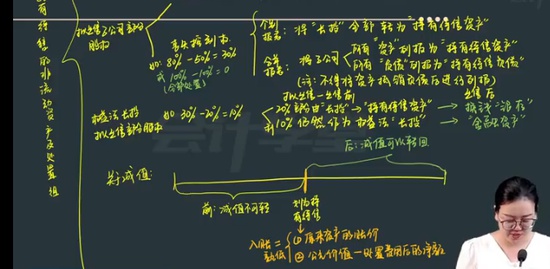 有待售的非流动资产及处置组
拟出售子公司部分股权
丧失控制权
如: 80%-50%=30%
或 100%-100%=0
(全部处置)
个别报表: 将"长投"全部转为"持有待售资产"
合并报表: 将子公司
所有"资产"列报为"持有待售资产"
所有"负债"列报为"持有待售负债"
(注: 不得将资产抵销负债后进行列报)
权益法长投
拟出售部分股权
如: 30%-20%=10%
拟出售→出售前
出售后
20%部分由"长投"→"持有待售资产"→
剩10%仍然作为权益法"长投"→"金融资产"
会计学堂
关于减值:
后: 减值可以转回
前: 减值不可转
划为持有待售
入账=孰低
① 原来资产的账价
② 公允价值-处置费用后的净额